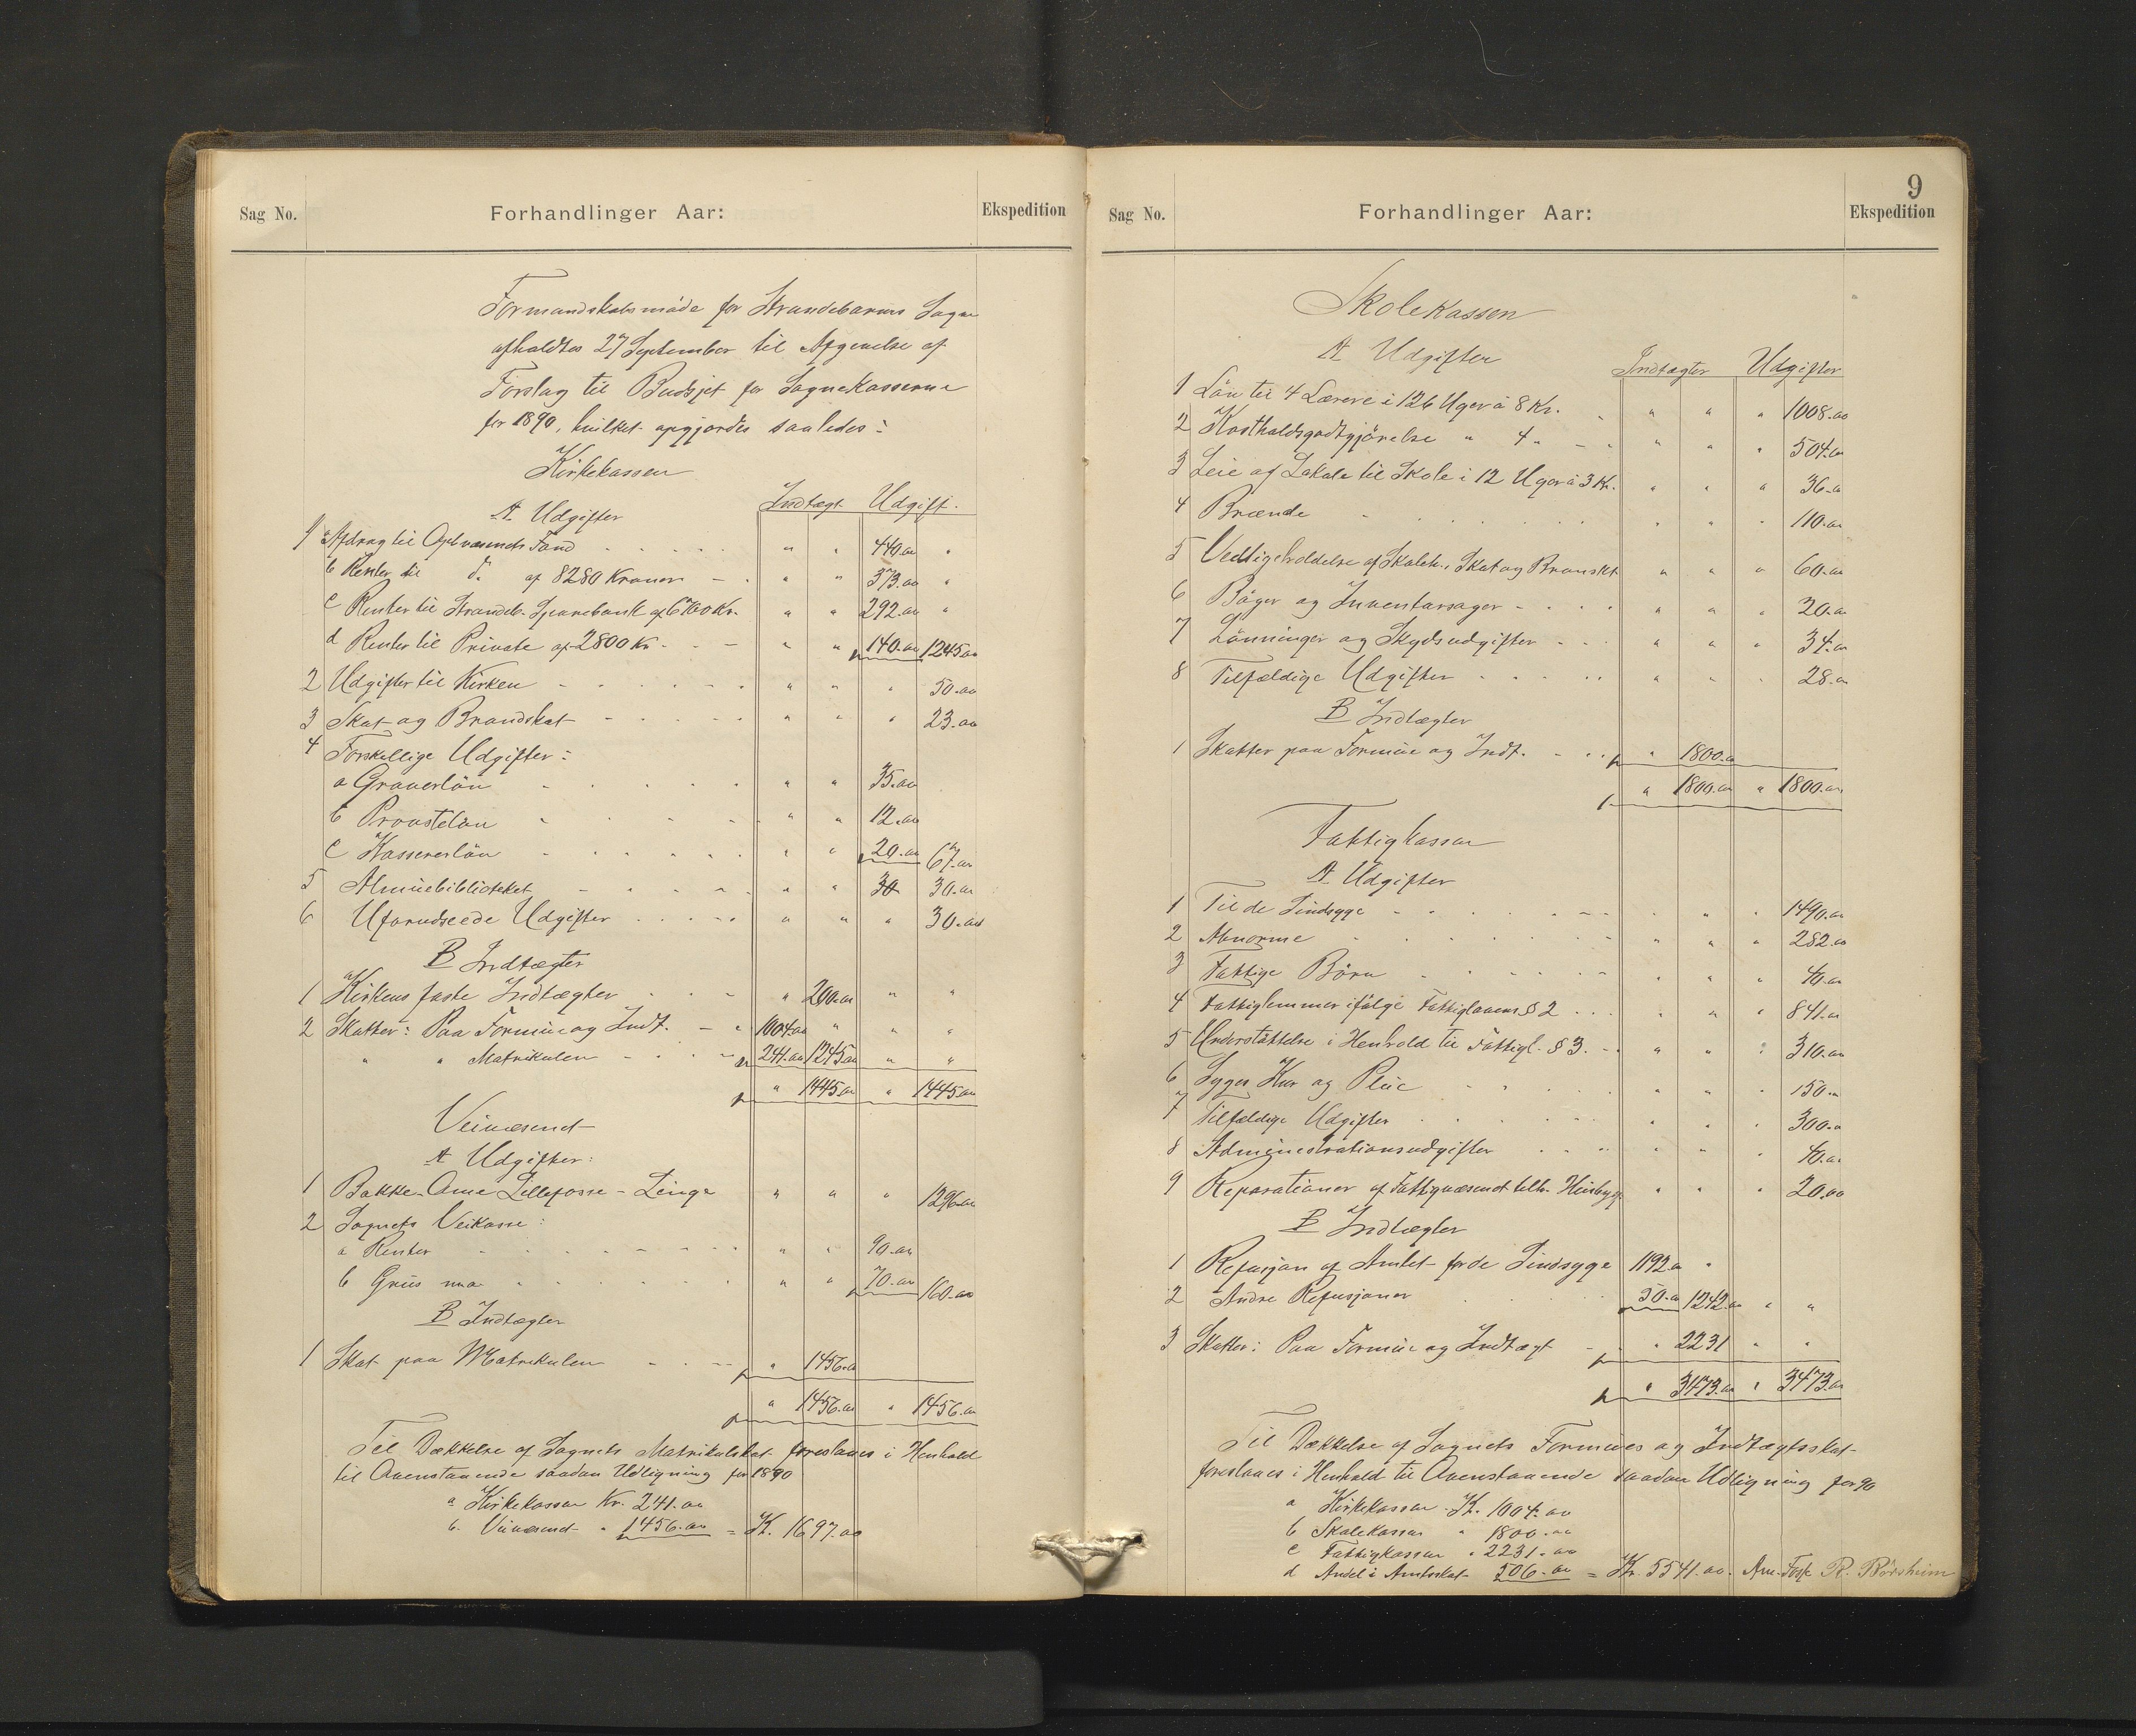 Sag No. Forhandlinger Aar: Ekspedition
Formandskabsmöde for Strandebarms Sogn
afholdtes 27 September til Afgivelse af
Forslag til Budsjet for Sognekasserne
for 1890, hvilket opgjordes saaledes:
Kirkekassen
A Udgifter Indtægt Udgift.
1 a Afdrag til Oplysnings Fond . . . . . " " 440.00 "
b Renter til do af 8280 Kroner " " 373.00 "
c Renter til Strandeb. Sparebank af 6700 Kr. " " 292.00 "
d Renter til Private af 2800 Kr. " " 140.00 1245.00
2 Udgifter til Kirken " " " 50.00
3 Skat og Brandskat " " " 23.00
4 Forskellige Udgifter:
a Graverlön " " 35.00
b Provstelön " " 12.00
c Kassererlön " " 20.00 67.00
5 Almuebiblioteket " " 30 30.00
6 Uforudseede Udgifter " " " 30.00
B Indtægter
1 Kirkens faste Indtægter " 200.00 " "
2 Skatter: Paa Formue og Indt. 1004.00 " " "
" " Matrikulen 241.00 1245.00 " "
" 1445.00 " 1445.00
Veivæsenet
A Udgifter:
1 Bakke-Ome Lillefosse-Linga " " " 1296.00
2 Sognets Veikasse:
a Renter " " 90.00
b Grus m.a. " " 70.00 160.00
B Indtægter
1 Skat paa Matrikulen " 1456.00
" 1456.00 " 1456.00
Til Dækkelse af Sognets Matrikulskat foreslaaes i Henhold
til Ovenstaaende saadan Udligning for 1890
a Kirkekassen Kr. 241.00
b. Veivæsenet " 1456.00 = Kr. 1697.00
9
Sag No. Forhandlinger Aar: Ekspedition
Skolekassen
A Udgifter Indtægter Udgifter
1 Lön til 4 Lærere i 126 Uger à 8 Kr. " " " 1008.00
2 Kostholdsgodtgjörelse " 4 " " " " 504.00
3 Leie af Lokale til Skole i 12 Uger à 3 Kr. " " " 36.00
4 Brænde " " " 110.00
5 Vedligeholdelse af Skoleh., Skat og Brandskt " " " 60.00
6 Böger og Inventarsager " " " 20.00
7 Lönninger og Skydsudgifter " " " 34.00
8 Tilfældige Udgifter " " " 28.00
B Indtægter
1 Skatter paa Formue og Indt. " 1800.00
" 1800.00 " 1800.00
Fattigkassen
A Udgifter
1 Til de Sindsyge " " " 1490.00
2 Abnorme " " " 282.00
3 Fattige Börn " " " 40.00
4 Fattiglemmer ifölge Fattiglovens § 2 " " " 841.00
5 Understöttelse i Henhold til Fattigl. § 3. " " " 310.00
6 Syges Kur og Pleie " " " 150.00
7 Tilfældige Udgifter " " " 300.00
8 Administrationsudgifter " " " 40.00
9 Reparationer af Fattigvæsenet tilh. Husbygn " " " 20.00
B Indtægter
1 Refusjon af Amtet for de Sindsyge 1192.00 "
2 Andre Refusjoner 50.00 1242.00 " "
3 Skatter: Paa Formue og Indtægt " 2231 " "
" 3473.00 " 3473.00
Til Dækkelse af Sognets Formues og Indtægtsskat
foreslaaes i Henhold til Ovenstaaende saadan Udligning for 90
a Kirkekassen Kr. 1004.00
b Skolekassen " 1800.00
c Fattigkassen " 2231.00
d Andel i Amtsskat 506.00 = Kr. 5541.00. Ane Fosse R. Börsheim